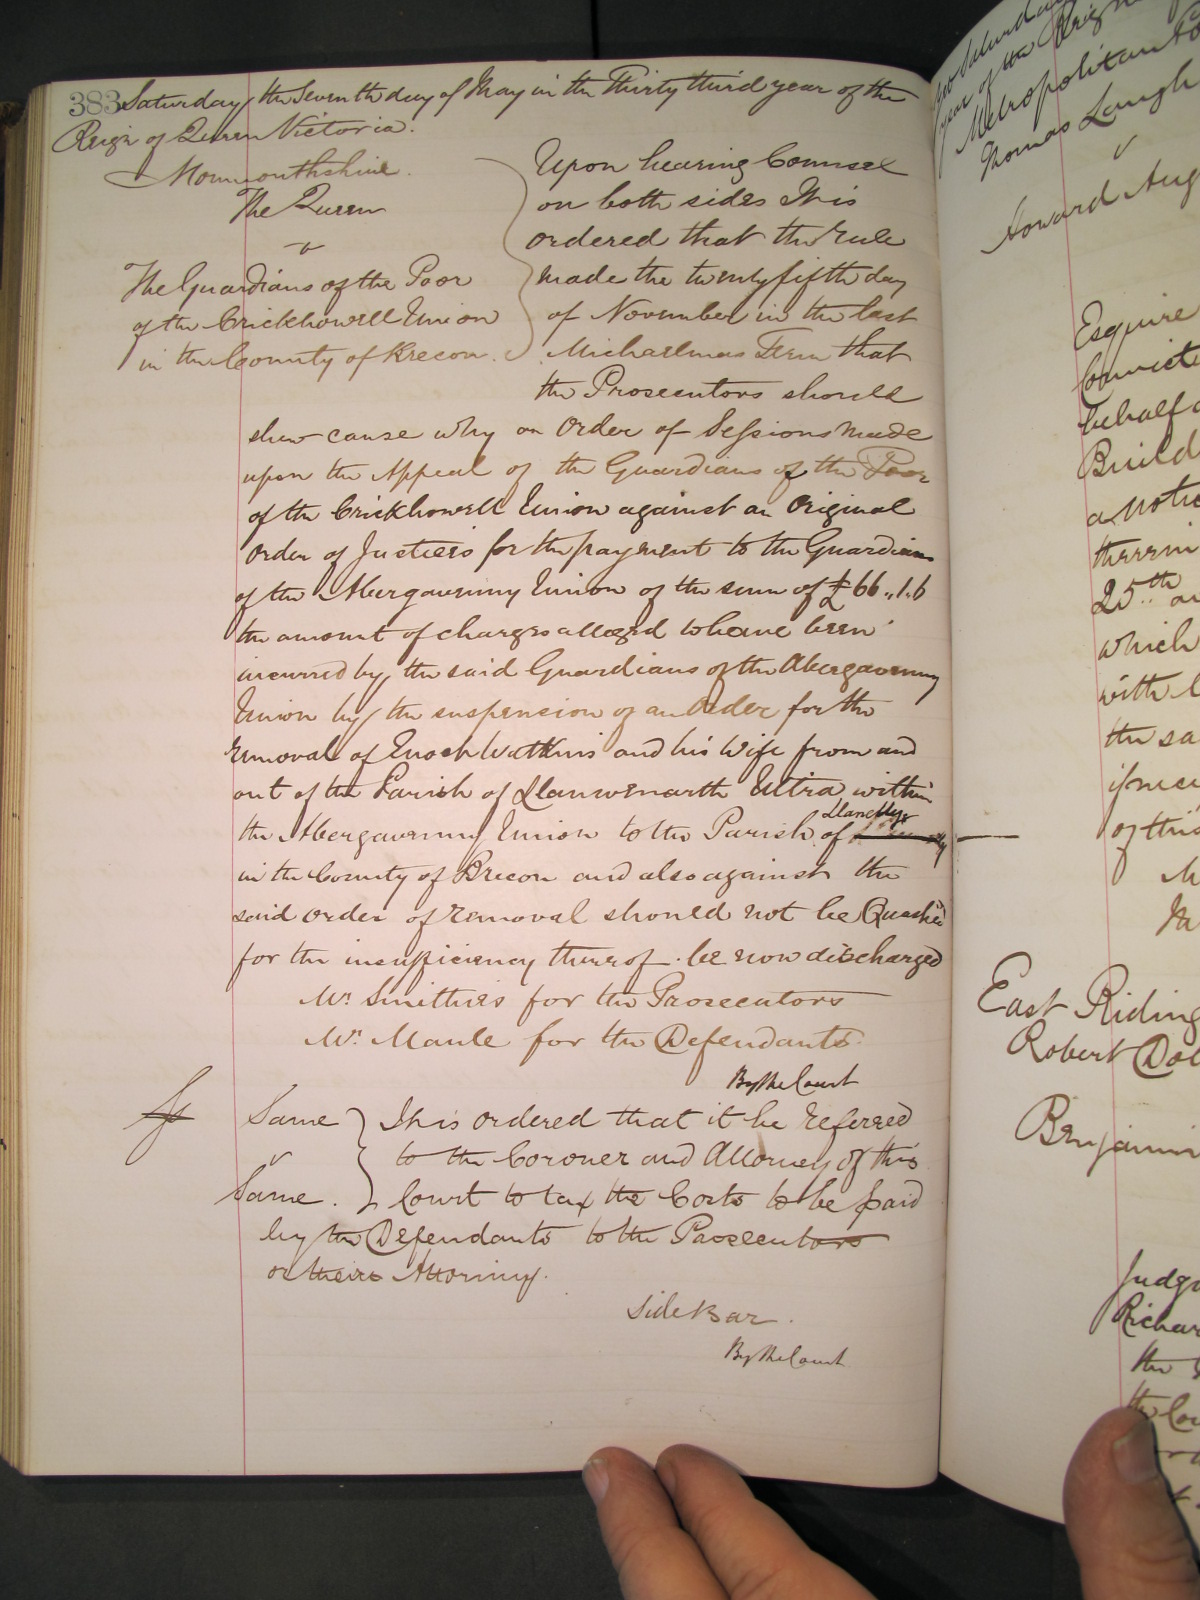 383 Saturday the Seventh day of May in the Thirty third year of the
Reign of Queen Victoria.
Monmouthshire.
The Queen
v
The Guardians of the Poor
of the Crickhowell Union
in the County of Brecon.
Upon hearing Counsel
on both sides It is
ordered that the Rule
made the twenty fifth day
of November in the last
Michaelmas Term that
the Prosecutors should
shew cause why an Order of Sessions made
upon the Appeal of the Guardians of the Poor
of the Crickhowell Union against an Original
Order of Justices for the payment to the Guardians
of the Abergavenny Union of the sum of £66..1.6
the amount of charges alleged to have been
incurred by the said Guardians of the Abergavenny
Union by the suspension of an Order for the
removal of Enoch Watkins and his Wife from and
out of the Parish of Llanwenarth Ultra within
the Abergavenny Union to the Parish of Llanelly
in the County of Brecon and also against the
said order of removal should not be Quashed
for the insufficiency thereof. be now discharged
Mr. Smithies for the Prosecutors
Mr. Maule for the Defendants.
By the Court
Same
v
Same.
It is ordered that it be referred
to the Coroner and Attorney of this
Court to tax the Costs to be paid
by the Defendants to the Prosecutors
or their Attorney.
Side Bar.
By the Court
year of the Reign
Metropolitan
Thomas Laugh
v
Howard Aug
Esquire
convicte
behalf
Build
a Noti
therein
25th
which
with
the sa
of this
East Riding
Robert
Benjamin
Judg
Richar
the
the Cou